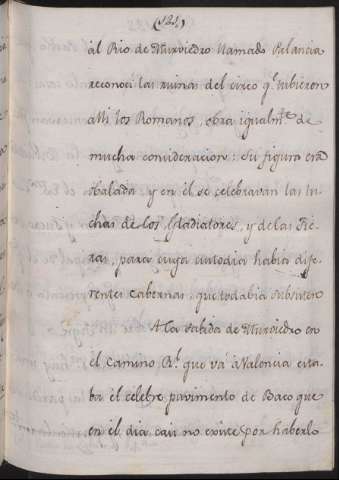 (121)
àl Rio de Murviedro llamado Pelancia
reconocí las ruinas del circo q.e hibieron
alli los Romanos, obra igualm.te de
mucha consideracion: Su figura era
obalada, y en él se celebravan las lu
chas de los Gladiatores, y de las Fie
ras, para cuya custodia habia dife
rentes cabernas, que todabia subsisten
A la salida de Murviedro en
el camino R.l que và à Valencia esta
ba él celebre pavimento de Baco que
en él dia casi no existe por haberlo